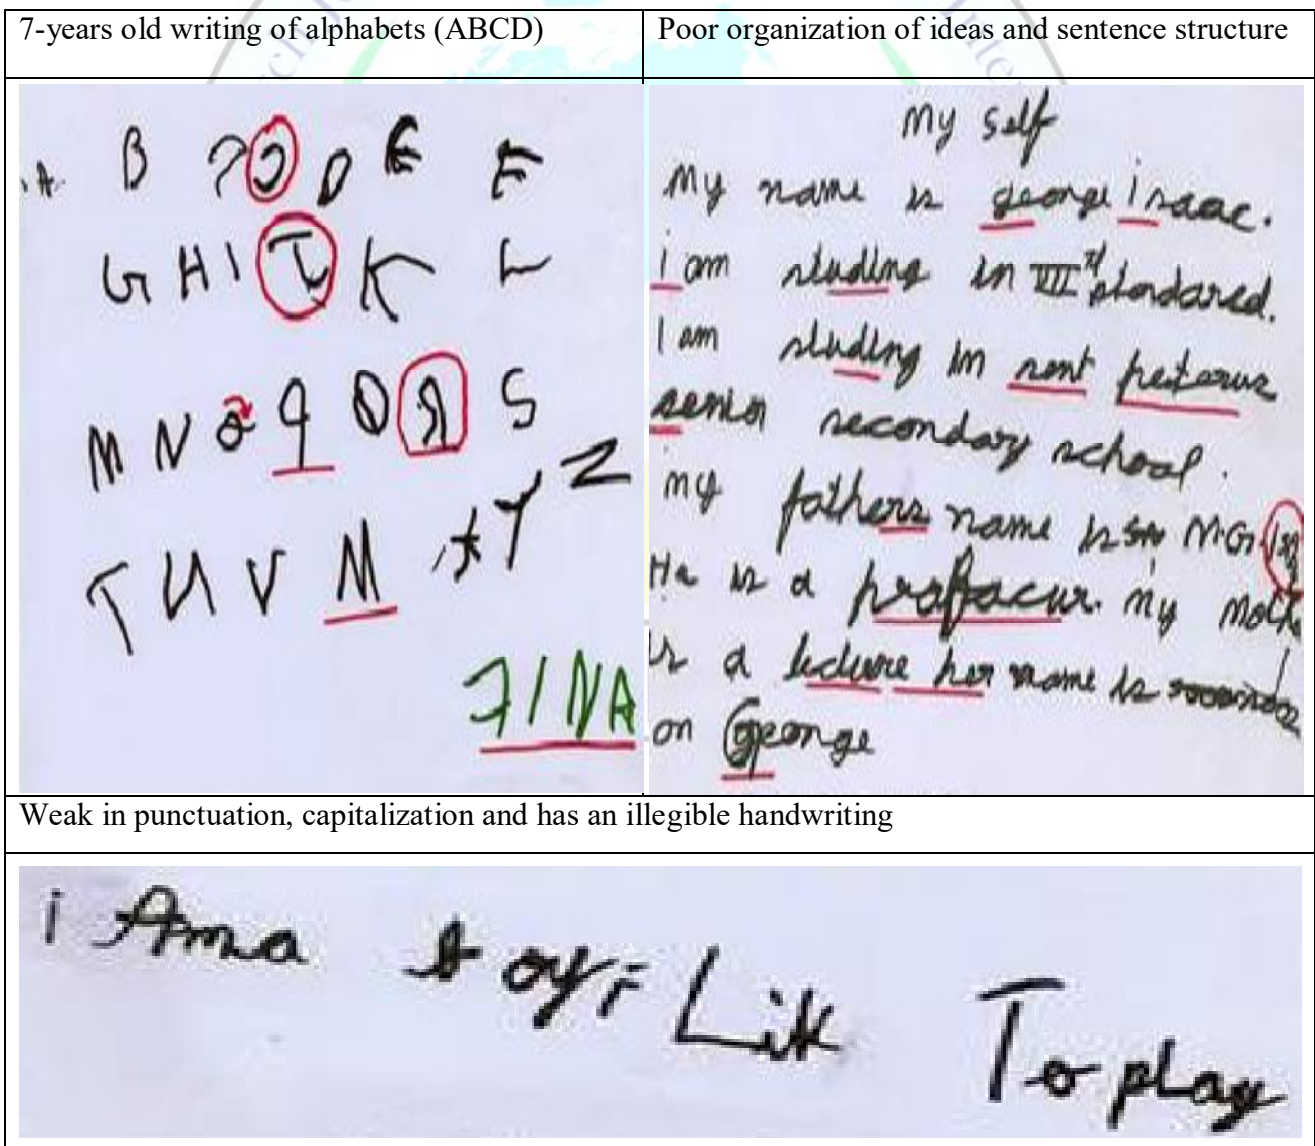 7-years old writing of alphabets (ABCD)
Poor organization of ideas and sentence structure
A B Ɔ D E F
G H I J K L
M N O q Q Я S
T U V M x Y Z
FINA
My Self
My name is george isaac.
i am studing in VII stondared.
I am studing in sent peterus
senior secondary school.
my fathers name is M.G.
He is a profacur. my moth
is a lecture her name is
on George
Weak in punctuation, capitalization and has an illegible handwriting
i Am a boy i Lik To play